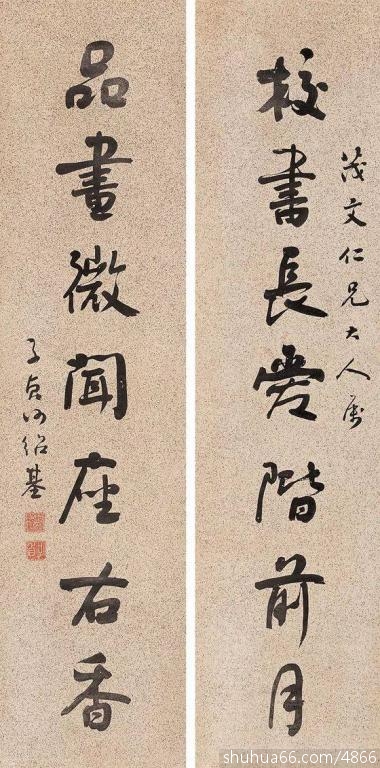 茂文仁兄大人属
校書長愛階前月
品畫微聞座右香
子貞何紹基
shuhua66.com/4866